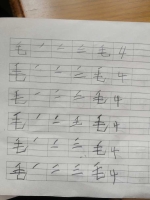 毛 ㇒ 二 三 毛 4
毛 ㇒ 二 三 毛 4
毛 ㇒ 二 三 毛 4
毛 ㇒ 二 三 毛 4
毛 ㇒ 二 三 毛 4
毛 ㇒ 二 三 毛 4